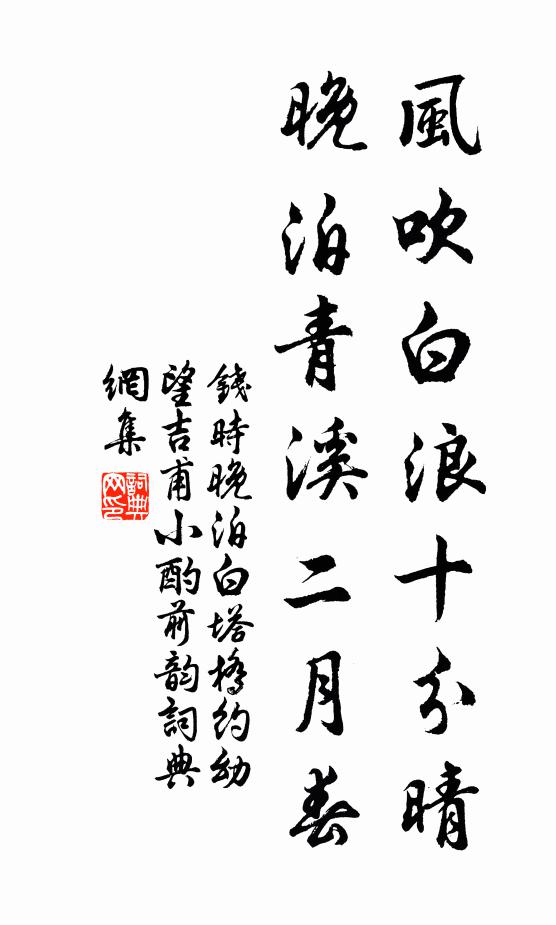 風吹白浪十分晴
晚泊青溪二月春
錢時晚泊白塔橋約幼
望吉甫小酌前韵詞典
網集
詞典
网印